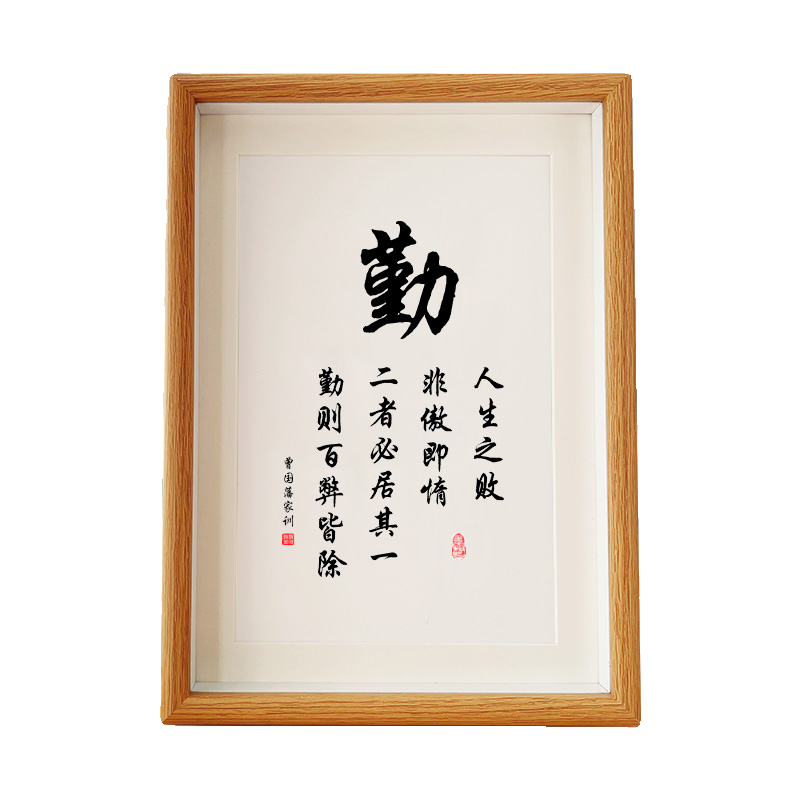 勤
人生之败
非傲即惰
二者必居其一
勤则百弊皆除
曾国藩家训